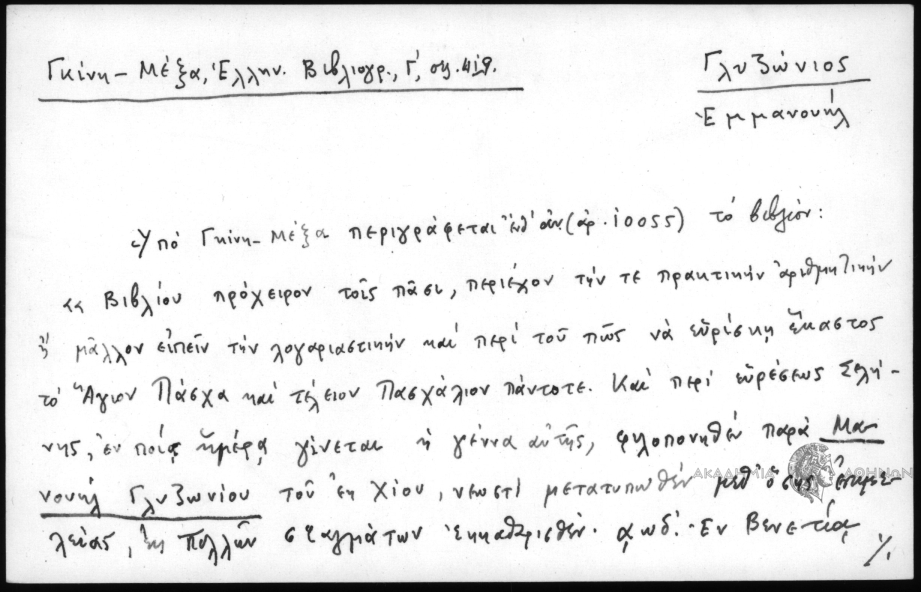 Γκίνη - Μέξα, Ἑλλην. Βιβλιογρ., Γ΄, σημ. 419.
Γλυζώνιος
Ἐμμανουήλ
Ὑπό Γκίνη - Μέξα περιγράφεται (ἀρ. 10055) τό βιβλίον:
«« Βιβλίου πρόχειρον τοῖς πᾶσι, περιέχον τήν τε πρακτικήν ἀριθμητικήν
ἤ μᾶλλον εἰπεῖν τήν λογαριαστικήν καί περί τοῦ πῶς νά εὑρίσκῃ ἕκαστος
τό Ἅγιον Πάσχα καί τέλειον Πασχάλιον πάντοτε. Καί περί εὑρέσεως Σελή-
νης, ἐν ποίᾳ ἡμέρᾳ γίνεται ἡ γέννα αὐτῆς, φιλοπονηθέν παρά Μα-
νουήλ Γλυζωνίου τοῦ ἐκ Χίου, νεωστί μετατυπωθέν μεθ' ὅσης ἐπιμε-
λείας, ἐκ πολλῶν σφαλμάτων ἐκκαθαρισθέν. ͵αωδ΄. Ἐν Βενετίᾳ
%.
ΑΚΑΔΗΜΙΑ ΑΘΗΝΩΝ